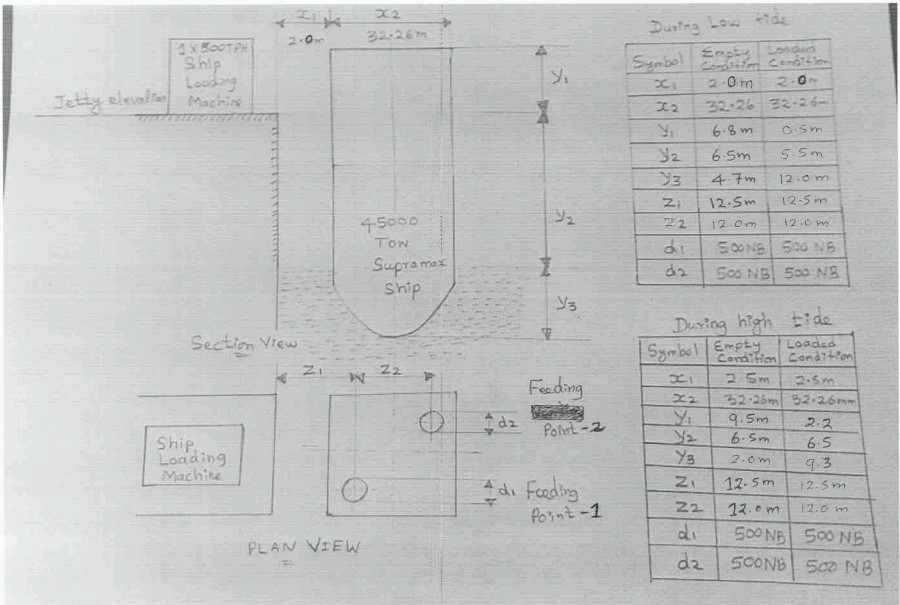 x1 x2
2.0m 32.26m
1x500TPH
Ship
Loading
Machine
Jetty elevation
y1
45000
TON
Supramax
Ship
y2
y3
Section View
Z1 Z2
Ship
Loading
Machine
d2
Feeding
Point-2
d1 Feeding
Point-1
PLAN VIEW
During Low tide
Symbol Empty Condition Loaded Condition
x1 2.0m 2.0m
x2 32.26 32.26m
y1 6.8m 0.5m
y2 6.5m 5.5m
y3 4.7m 12.0m
Z1 12.5m 12.5m
Z2 12.0m 12.0m
d1 500NB 500NB
d2 500NB 500NB
During high tide
Symbol Empty Condition Loaded Condition
x1 2.5m 2.5m
x2 32.26m 32.26mm
y1 9.5m 2.2
y2 6.5m 6.5
y3 2.0m 9.3
Z1 12.5m 12.5m
Z2 12.0m 12.0m
d1 500NB 500NB
d2 500NB 500NB